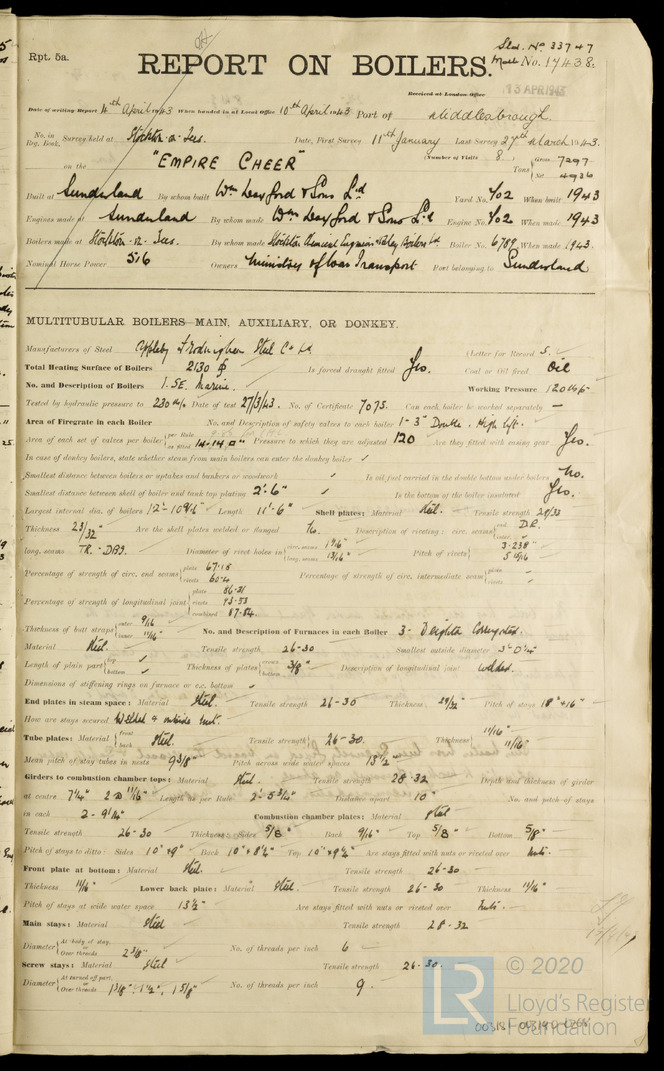 Sld. No 33747
Rpt. 5a.
REPORT ON BOILERS.
Mbro No. 17438.
Received at London Office 13 APR 1943
Date of writing Report 4th April 1943 When handed in at Local Office 10th April 1943 Port of Middlesbrough.
No. in Reg. Book. Survey held at Stockton-on-Tees. Date, First Survey 11th January Last Survey 27th March 1943.
on the "EMPIRE CHEER" (Number of Visits 8) Tons Gross 7297 Net 4936
Built at Sunderland By whom built Wm Doxford & Sons Ld Yard No. 702 When built 1943
Engines made at Sunderland By whom made Wm Doxford & Sons Ld Engine No. 702 When made 1943
Boilers made at Stockton-on-Tees. By whom made Stockton Chemical Engineers & Riley Boilers Ld Boiler No. 6709 When made 1943.
Nominal Horse Power 516 Owners Ministry of War Transport Port belonging to Sunderland
MULTITUBULAR BOILERS MAIN, AUXILIARY, OR DONKEY.
Manufacturers of Steel Appleby Frodingham Steel Co Ld (Letter for Record S.
Total Heating Surface of Boilers 2130 Is forced draught fitted Yes. Coal or Oil fired Oil
No. and Description of Boilers 1. SE. Marine. Working Pressure 120
Tested by hydraulic pressure to 230 Date of test 27/3/43. No. of Certificate 7075. Can each boiler be worked separately –
Area of Firegrate in each Boiler No. and Description of safety valves to each boiler 1-3" Double. High lift.
Area of each set of valves per boiler per Rule as fitted 14.14 Pressure to which they are adjusted 120 Are they fitted with easing gear Yes.
In case of donkey boilers, state whether steam from main boilers can enter the donkey boiler ✓
Smallest distance between boilers or uptakes and bunkers or woodwork ✓ Is oil fuel carried in the double bottom under boilers No.
Smallest distance between shell of boiler and tank top plating 2'-6" Is the bottom of the boiler insulated Yes.
Largest internal dia. of boilers Length 11'-6" Shell plates: Material Steel. Tensile strength 29/33
Thickness 23/32" Are the shell plates welded or flanged No. Description of riveting: circ. seams end D.R. inter. ✓
long. seams TR. DBS. Diameter of rivet holes in circ. seams long. seams Pitch of rivets 3.238" 5 15/16
Percentage of strength of circ. end seams plate 67.15 rivets 60.4 Percentage of strength of circ. intermediate seam plate ✓ rivets ✓
Percentage of strength of longitudinal joint plate 86.31 rivets 93.53 combined 87.84
Thickness of butt straps outer 9/16 inner 11/16" No. and Description of Furnaces in each Boiler 3 - Deighton Corrugated.
Material Steel. Tensile strength 26-30 Smallest outside diameter
Length of plain part top ✓ bottom ✓ Thickness of plates crown bottom 3/8" Description of longitudinal joint welded.
Dimensions of stiffening rings on furnace or c.c. bottom ✓
End plates in steam space: Material Steel. Tensile strength 26-30 Thickness 29/32" Pitch of stays 18" x 16"
How are stays secured Welded & outside nut.
Tube plates: Material front back Steel. Tensile strength 26-30. Thickness 11/16" 11/16"
Mean pitch of stay tubes in nests 9 3/8" Pitch across wide water spaces 13 1/2"
Girders to combustion chamber tops: Material Steel. Tensile strength 28-32 Depth and thickness of girder
at centre 7 1/4" 2 @ 11/16" Length as per Rule 2'-5 3/4" Distance apart 10" No. and pitch of stays
in each 2 - 9 1/4" Combustion chamber plates: Material Steel
Tensile strength 26-30 Thickness: Sides 5/8" Back 9/16" Top 5/8" Bottom 5/8"
Pitch of stays to ditto: Sides 10" x 9" Back 10" x 8 1/4" Top 10" x 9 1/4" Are stays fitted with nuts or riveted over Nuts.
Front plate at bottom: Material Steel. Tensile strength 26-30
Thickness 11/16" Lower back plate: Material Steel. Tensile strength 26-30 Thickness 11/16"
Pitch of stays at wide water space 13 1/2" Are stays fitted with nuts or riveted over Nuts.
Main stays: Material Steel Tensile strength 28-32
Diameter At body of stay, or Over threads 2 3/8" No. of threads per inch 6
Screw stays: Material Steel Tensile strength 26-30.
Diameter At turned off part, or Over threads 1 3/8", 1 1/2", 1 5/8" No. of threads per inch 9.
LR © 2020
Lloyd's Register
Foundation